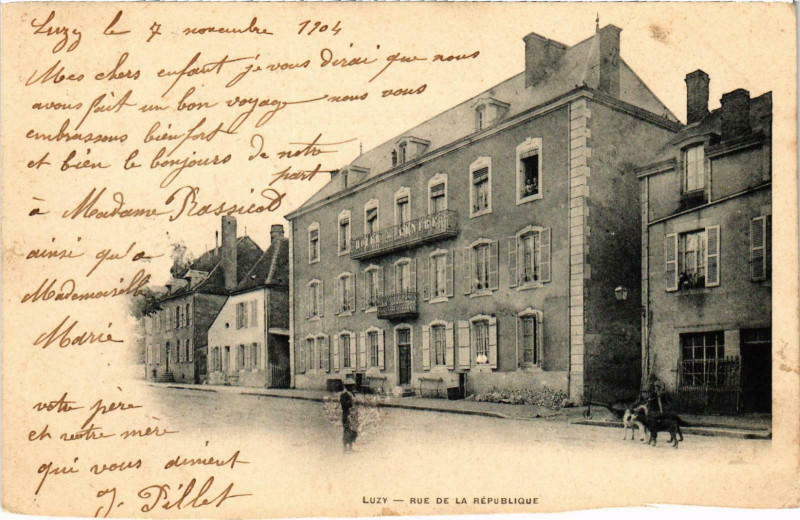 Luzy le 7 novembre 1904
Mes chers enfant je vous dirai que nous
avons fait un bon voyage nous vous
embrassons bien fort
et bien le bonjours de notre
part
à Madame Rassicod
ainsi qu'a
Mademoiselle
Marie
votre père
et votre mère
qui vous aiment
J. Pillet
HOTEL DU CENTRE
LUZY — RUE DE LA RÉPUBLIQUE